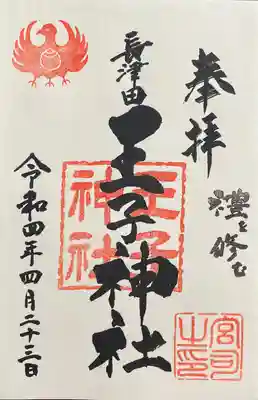 奉拝
禮を修む
長津田
王子神社
王子神社
宮司之印
令和四年四月二十三日